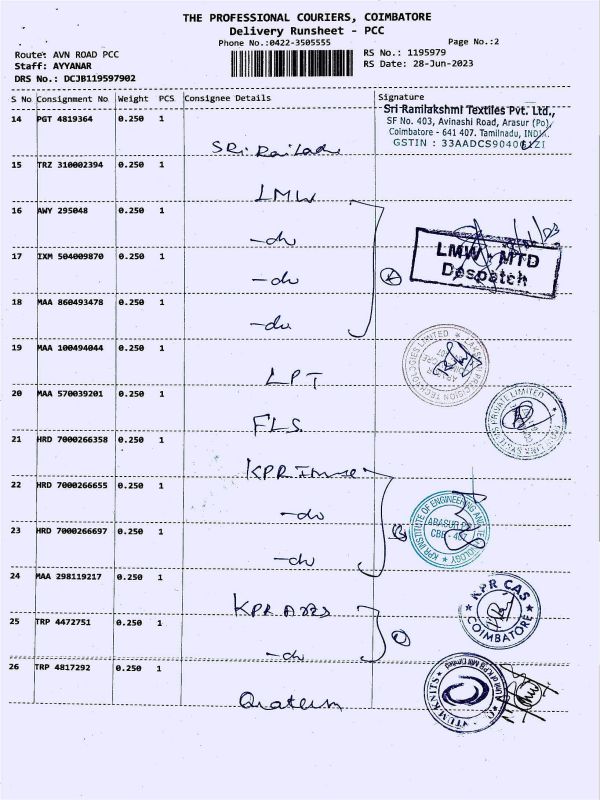 THE PROFESSIONAL COURIERS, COIMBATORE
Delivery Runsheet - PCC
Phone No.:0422-3505555
Page No.:2
Route: AVN ROAD PCC
RS No.: 1195979
Staff: AYYANAR
RS Date: 28-Jun-2023
DRS No.: DCJB119597902
S No Consignment No Weight PCS Consignee Details Signature
14 PGT 4819364 0.250 1
Sri Ranilakshmi Textiles Pvt. Ltd.,
SF No. 403, Avinashi Road, Arasur (Po),
Coimbatore - 641 407. Tamilnadu, INDIA.
GSTIN : 33AADCS9040
15 TRZ 310002394 0.250 1
LMW
16 AWY 295048 0.250 1
-do
LMW MTD
Despatch
17 IXM 504009870 0.250 1
-do
18 MAA 860493478 0.250 1
-do
19 MAA 100494044 0.250 1
LPT
20 MAA 570039201 0.250 1
FLS
21 HRD 7000266358 0.250 1
KPR
22 HRD 7000266655 0.250 1
-do
KPR INSTITUTE OF ENGINEERING AND TECHNOLOGY
23 HRD 7000266697 0.250 1
-do
24 MAA 298119217 0.250 1
KPR Arts
KPR CAS
COIMBATORE
25 TRP 4472751 0.250 1
-do
26 TRP 4817292 0.250 1